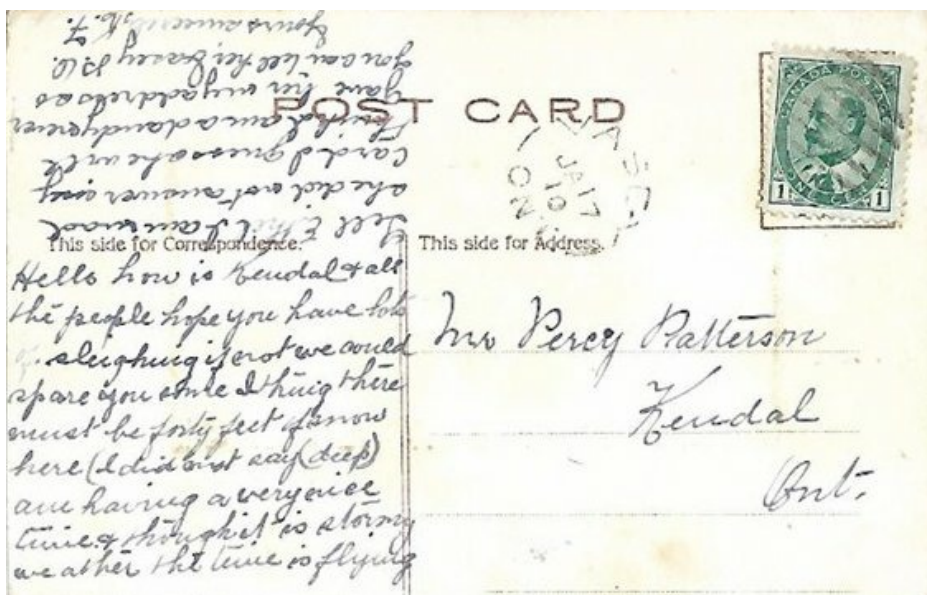 POST CARD
CANADA POSTAGE
ONE CENT
1 1
JA 17
10
ONT
This side for Correspondence.
This side for Address.
Hello how is Kendal & all
the people hope you have lots
of sleighing if not we could
spare you some I thing there
must be forty feet of snow
here (I did not say (deep)
am having a very nice
time & though it is stormy
weather the time is flying
Tell Ethel I am mad
she did not answer my
card I guess she will
think I am a dandy ever
gave her my address as
you can tell her, P.O.
Yours sincerely, F.
Mr Percy Patterson
Kendal
Ont.